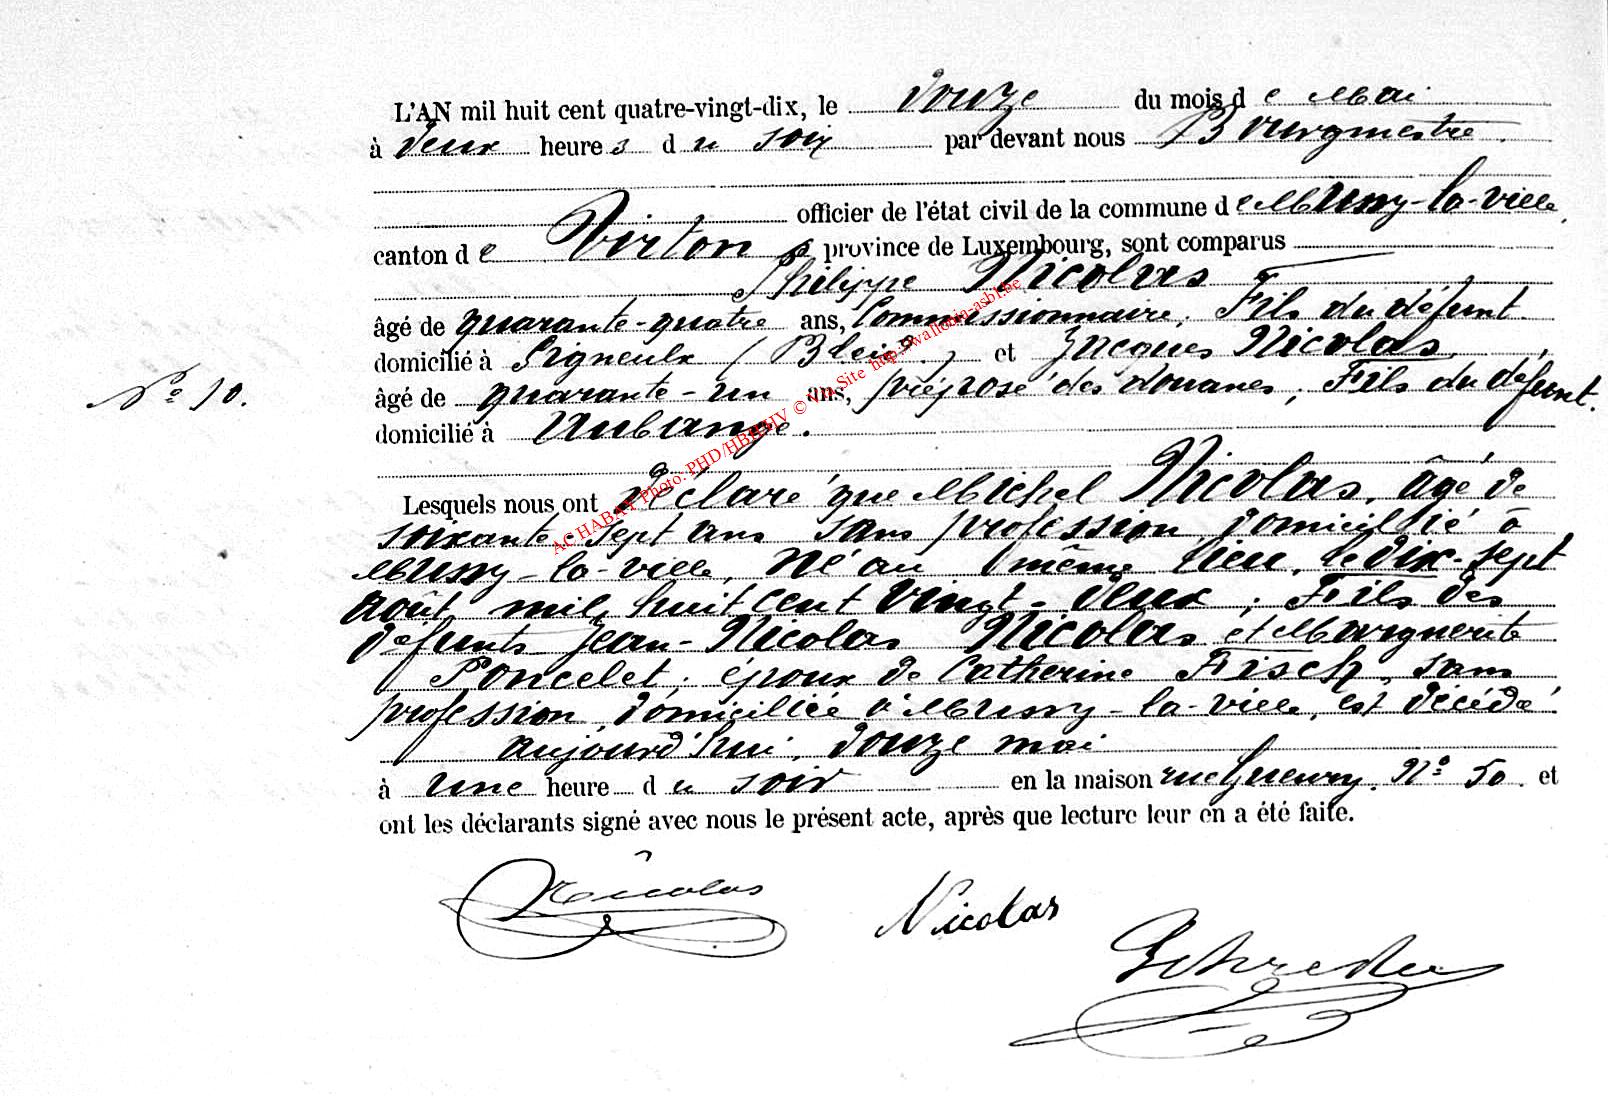 L'AN mil huit cent quatre-vingt-dix, le douze du mois de Mai
à deux heures du soir par devant nous Bourgmestre
officier de l'état civil de la commune de Mussy-la-ville,
canton de Virton province de Luxembourg, sont comparus
Philippe Nicolas
âgé de quarante-quatre ans, Commissionnaire, Fils du défunt.
domicilié à Signeulx (Bleid.) et Jacques Nicolas,
N° 10.
âgé de quarante-un ans, préposé des douanes, Fils du défunt.
domicilié à Aubange.
Lesquels nous ont déclaré que Michel Nicolas, âgé de
soixante-sept ans sans profession, domicilié à
Mussy-la-ville, né au même lieu, le dix-sept
août mil huit cent vingt-deux ; Fils des
défunts Jean-Nicolas Nicolas et Marguerite
Poncelet ; époux de Catherine Fisch, sans
profession, domiciliée à Mussy-la-ville, est décédé
aujourd'hui, douze mai
à une heure du soir en la maison rue N° 50. et
ont les déclarants signé avec nous le présent acte, après que lecture leur en a été faite.
Nicolas
Nicolas
AC HABAY Photo: PHD/HBH/HV © Via Site http://wallonia-asbl.be